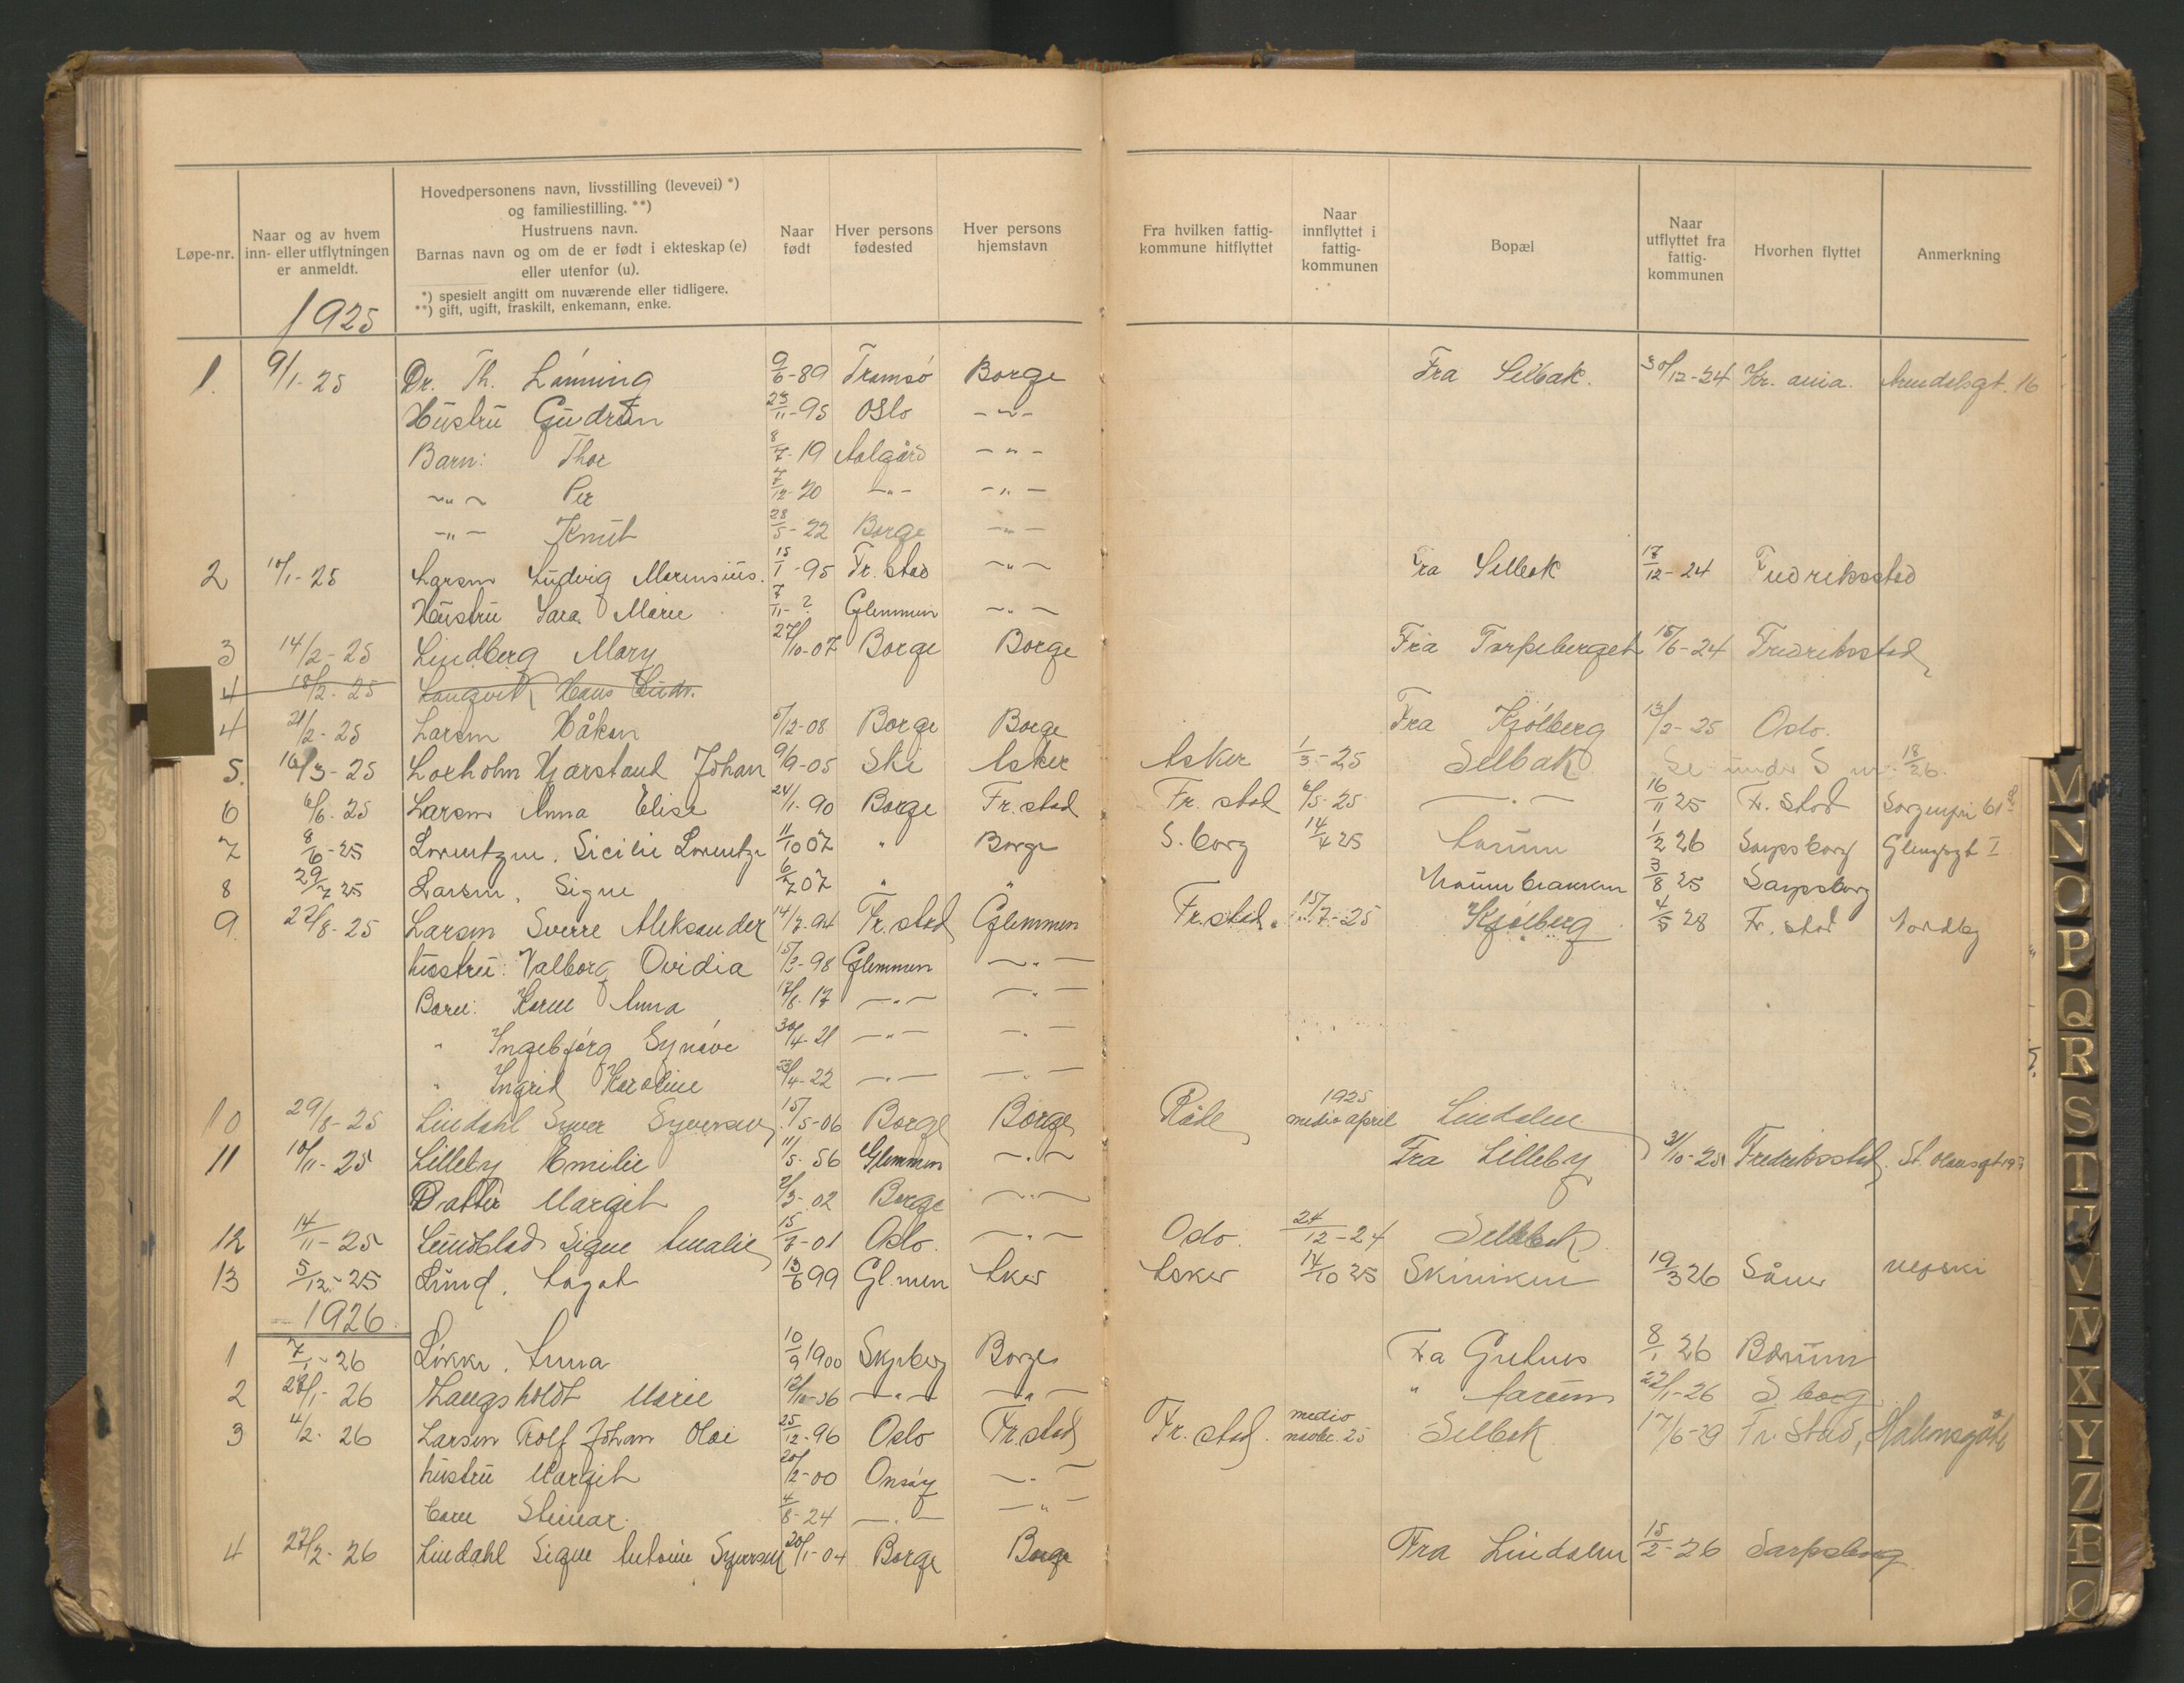 Løpe-nr. Naar og av hvem inn- eller utflytningen er anmeldt. Hovedpersonens navn, livsstilling (levevei) *) og familiestilling. **) Hustruens navn. Barnas navn og om de er født i ekteskap (e) eller utenfor (u). *) spesielt angitt om nuværende eller tidligere. **) gift, ugift, fraskilt, enkemann, enke. Naar født Hver persons fødested Hver persons hjemstavn Fra hvilken fattigkommune hitflyttet Naar innflyttet i fattigkommunen Bopæl Naar utflyttet fra fattigkommunen Hvorhen flyttet Anmerkning
1925
1. 9/1-25 Dr. Th. Lönning 9/6-89 Tromsø Borge Fra Selbak. 30/12-24 Kr.ania. Arendalsgt. 16
Hustru Gudrun 23/11-95 Oslo -"-
Barn: Thor 8/7-19 Aalgård -"-
-"- Per 7/12-20 -"- -"-
-"- Knut 28/5-22 Borge -"-
2 10/1-25 Larsen Ludvig Marensius. 15/1-95 Fr.stad -"- Fra Selbak 17/12-24 Fredriksstad
Hustru Sara Marie 7/11-? Glemmen -"-
3 14/2-25 Lindberg Mary 27/10-07 Borge Borge Fra Torpeberget 15/6-24 Fredriksstad
4 18/2-25 Langvik Hans
4 21/2-25 Larsen Håken 5/12-08 Borge Borge Fra Kjölberg 13/2-25 Oslo.
5. 16/3-25 Loxholm Harstaul Johan 9/9-05 Ski Asker Asker 1/3-25 Selbak Se under S nr. 18/26.
6 6/6-25 Larsen Anna Elise 24/1-90 Borge Fr.stad Fr. stad 6/5-25 -"- 16/11 25 Fr. stad Sorgenfri 61
7 8/6-25 Lorentzen, Sicilie Lorentze 11/10 07 " Borge S.borg 14/4 25 Torum 1/2 26 Sarpsborg Glengsgt I
8 29/7 25 Larsen, Signe 6/7 07 " " 3/8 25 Sarpsborg
9. 27/8-25 Larsen Sverre Aleksander 14/7-94 Fr.stad Glemmen Fr.stad. 15/7-25 Kjølberg 4/5 28 Fr. stad Nordby
hustru: Valborg Ovidia 15/2-98 Glemmen -"-
Barn: Karen Anna 17/8-17 -"- -"-
" Ingebjörg Synöve 30/4-21 -"- -"-
" Ingrid Karoline 23/4-22 -"- -"-
10 29/8-25 Lindahl Syver Syversen 15/5-06 Borge Borge Råde 1925 medio april Lindalen
11 10/11-25 Lilleby Emilie 11/5-56 Glemmen -"- Fra Lilleby 31/10-25 Fredriksstad St. Hansgt 19
Datter Margit 2/3-02 Borge -"-
12 14/11-25 Lundblad Signe Amalie 15/7-01 Oslo. -"- Oslo. 24/12-24 Selbak
13 5/12-25 Lund, Aagot 13/6 99 Gl.men Aker Asker 14/10 25 Skiniken 19/3 26 Såner
1926
1 7/1-26 Løkke, Anna 10/9 1900 Skjeberg Borge Fra Gretnes 8/1 26 Bærum
2 28/1-26 Langsholdt Marie 12/10-36 -"- -"- " Aarum 22/1-26 S.borg
3 4/2-26 Larsen Rolf Johan Olai 25/12-96 Oslo Fr.stad Fr. stad. medio novbr. 25 Selbak 17/6-29 Fr. stad, Holmsgate
hustru Margit 20/2-00 Onsøy -"-
barn Steinar 4/8-24 -"- -"-
4 27/2-26 Lindahl Signe Antonie Syversen 20/1-04 Borge Borge Fra Lindalen 15/2-26 Sarpsborg
M
N
O
P
Q
R
S
T
U
V
W
X
Y
Z
Æ
Ø